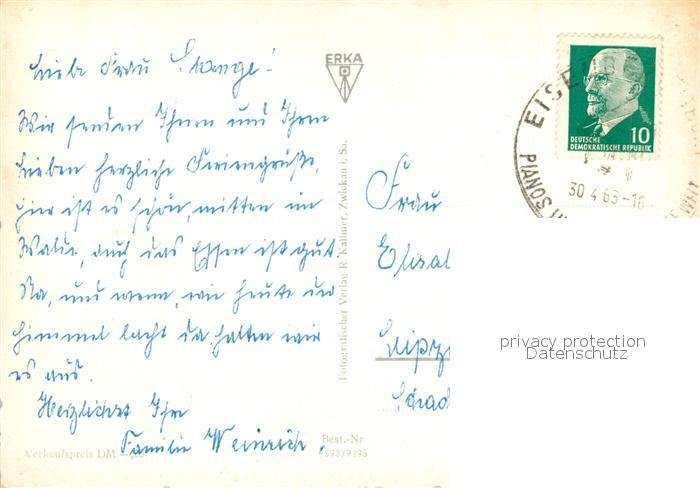 Liebe Frau Stange!
Wir senden Ihnen und Ihren
Lieben herzliche Feriengrüße,
hier ist es schön, mitten im
Walde, auch das Essen ist gut.
Na, und wenn, wie heute der
Himmel lacht da halten wir
es aus.
Herzlichst Ihre
Familie Weinrich.
Verkaufspreis DM
Best.-Nr
ERKA
Fotografischer Verlag R. Kallmer, Zwickau i. Sa.
DEUTSCHE
DEMOKRATISCHE REPUBLIK
10
EISENBE
PIANOS
30.4.63-16
WELT
Frau
Elisa
Leipz
privacy protection
Datenschutz